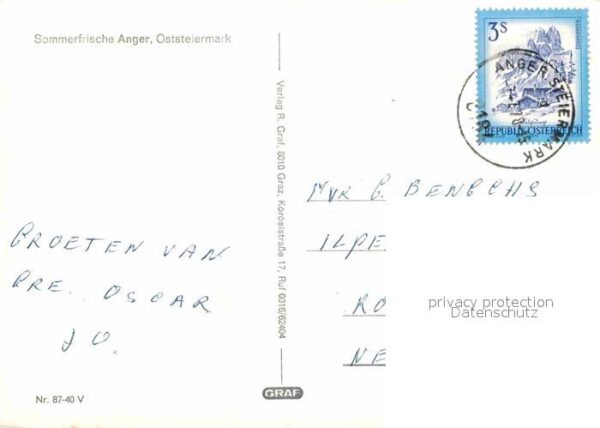 Sommerfrische Anger, Oststeiermark
3S
REPUBLIK ÖSTERREICH
ANGER, STEIERMARK
8184
Verlag R. Graf, 8010 Graz, Körösistraße 17, Ruf 0316/62404
MVR G BENECHS
ILPE
RO
NE
GROETEN VAN
PRE. OSCAR
JO.
privacy protection
Datenschutz
Nr. 87-40 V
GRAF